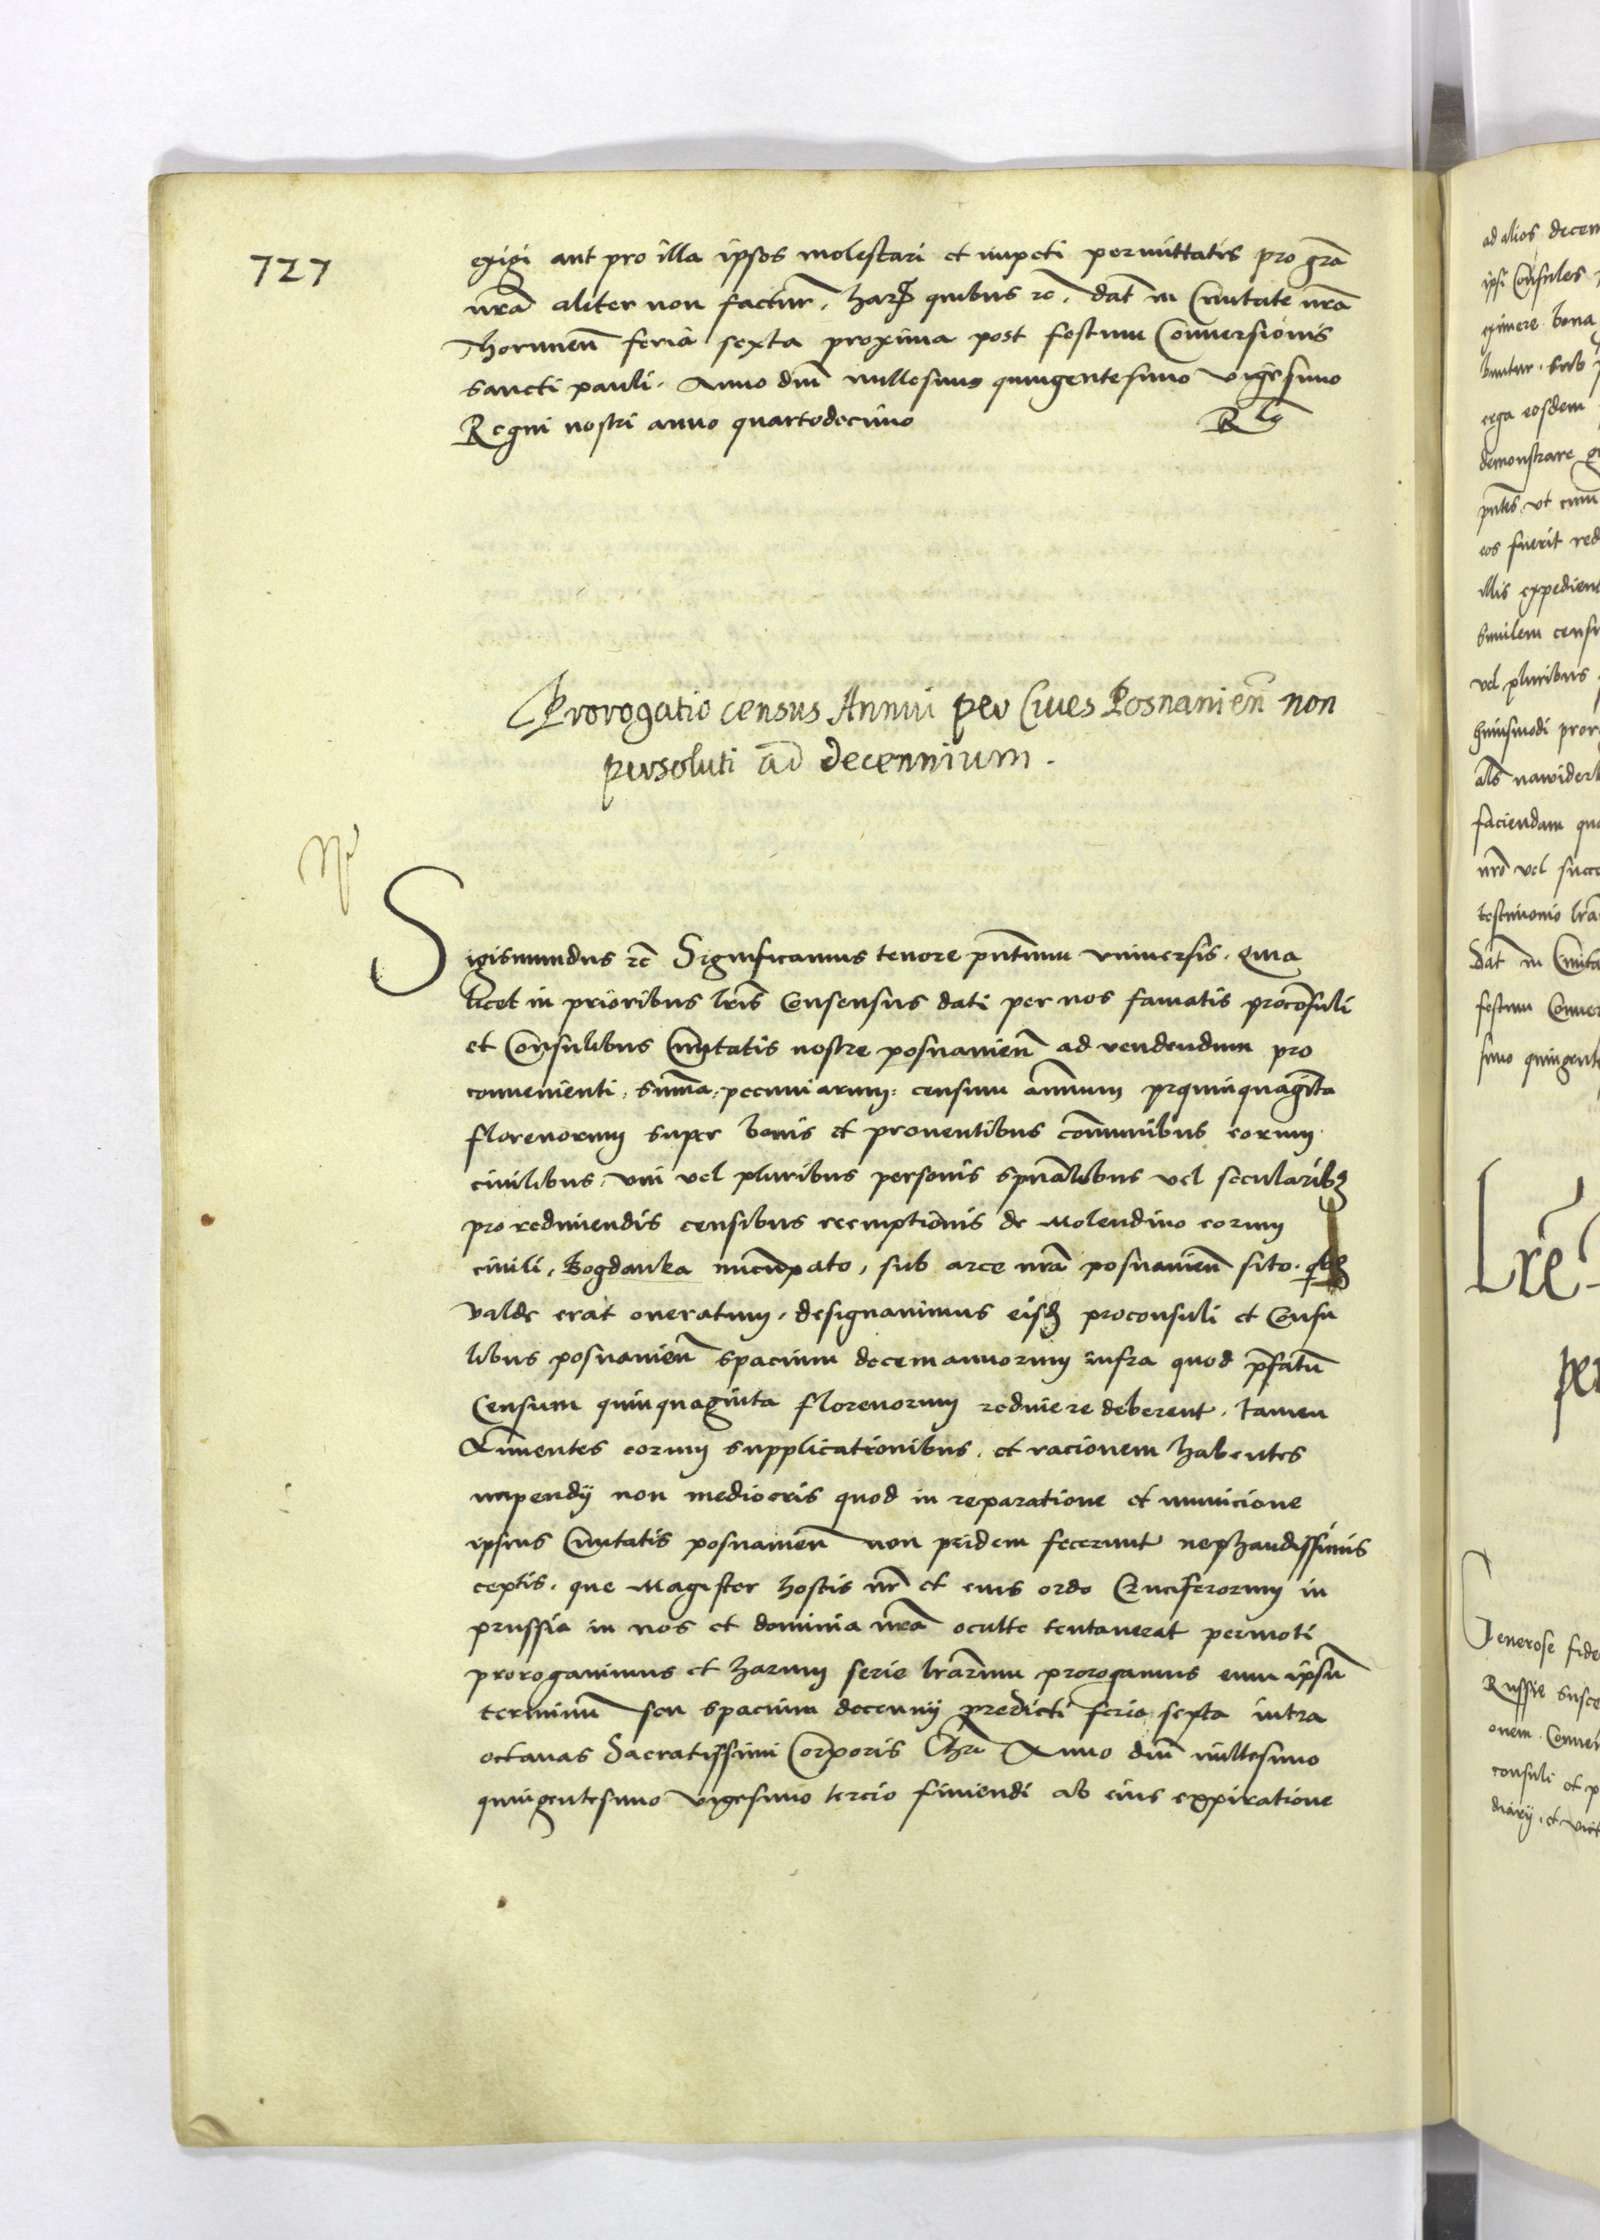 727
exigi aut pro illa ipsos molestari et impeti permittatis pro gra͞
nra͞ aliter non factur͞. harꝝ quibus rc. dat͞ in Ciuitate nra͞
Thorunen͞ feria sexta proxima post festum Conuersionis
sancti pauli. Anno dni͞ millesimo quingentesimo vigesimo
Regni nostri anno quartodecimo
Prorogatio census Annui per Ciues Posnanien͞ non
persoluti ad decennium.
Sigismundus rc͞ Significamus tenore pn͞tium vniuersis. quia
licet in prioribus lr͞is Consensus dati per nos famatis proconsuli
et Consulibus Ciuitatis nostre posnanien͞ ad vendendum pro
conuenienti, summa, pecuniarum, censum annuum quinquaginta
florenorum super bonis et prouentibus com͞unibus eorum
ciuilibus, vni vel pluribus personis spu͞alibus vel secularibꝫ
pro redimendis censibus reemptionis de Molendino eorum
ciuili, Bogdanka nuncupato, sub arce nra͞ posnanien͞ sito.
valde erat oneratum, designauimus eisdꝫ proconsuli et Consu
libus posnanien͞ spacium decem annorum infra quod p͞fatu͞
Censum quinquaginta florenorum redimere deberent. tamen
Annuentes eorum supplicationibus. et racionem habentes
impendij non mediocris quod in reparatione et municione
ipsius Ciuitatis posnanien͞ non pridem fecerunt nephandissimis
ceptis. que Magister hostis nr͞ et eius ordo Cruciferorum in
prussia in nos et dominia nra͞ occulte tentauerat permoti
prorogauimus et harum serie lr͞arum prorogamus eum ipsu͞
terminu͞ seu spacium decennij predicti feria sexta intra
octauas Sacratissimi Corporis Chr͞i Anno dni͞ millesimo
quingentesimo vigesimo tercio finiendi ab eius expiratione
ad alios decem
ipsi Consules
eximere bona
erga eosdem
demonstrare
pn͞tes, vt cum
eos fuerit red
illis expedien
similem censu
vel pluribus
huiusmodi pror
faciendam qua
nro͞ vel succ
testimonio lra͞
Dat͞ in Ciuita
festum Conuer
simo quingente
Lre͞
per
Generose fide
Russie susce
onem. Conuen
consuli et p
diarij. et vict